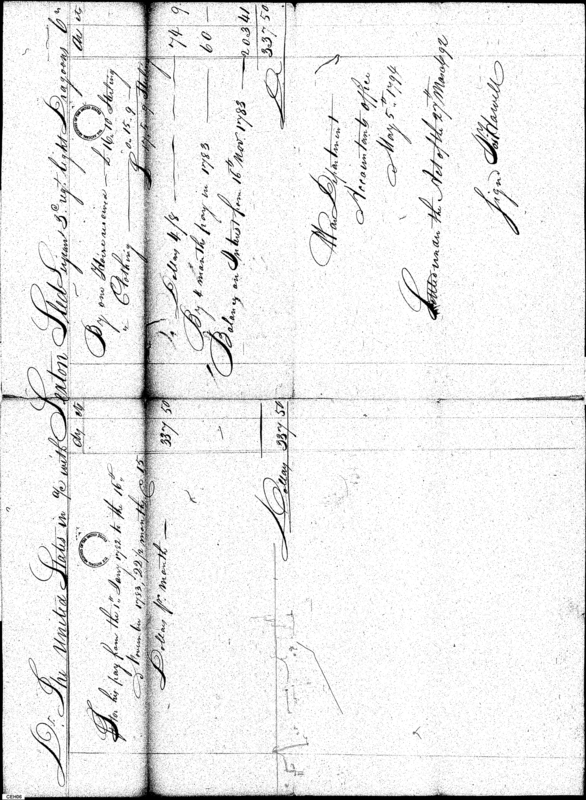 Dr. The United States in a/c with Sexton Sled Supdn 3d regt light Dragoons Cr
Ds. cts.
To his pay from the 1st Jany 1782 to the 16th
November 1783, 22 1/2 months @ 15
Dollars pr. month —
337 50
Dollars 337 50
Ds. cts
By one Horse received — £ 16.10 Sterling
" Clothing — 
Dollars 4/8 — 74 9
By 4 months pay in 1783 60 —
Balance on Interest from 16th Novr 1783 — 203 41
Ds 337 50
War Department
Accountants office
May 5th 1794
Settled under the Act of the 27th March 92
Signd Jos Howell
CEH06